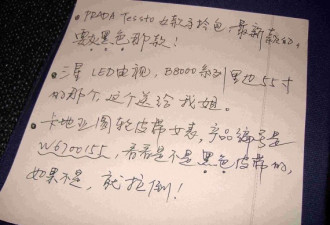 • PRADA Tessto 女款手拎包,最新款的,
要黑色那款!
• 三星 LED电视,B8000系列里边55寸
的那个,这个送给我姐。
• 卡地亚圆轮皮带女表,产品编号是
W6700155,看看是不是黑色皮带的,
如果不是,就拉倒!